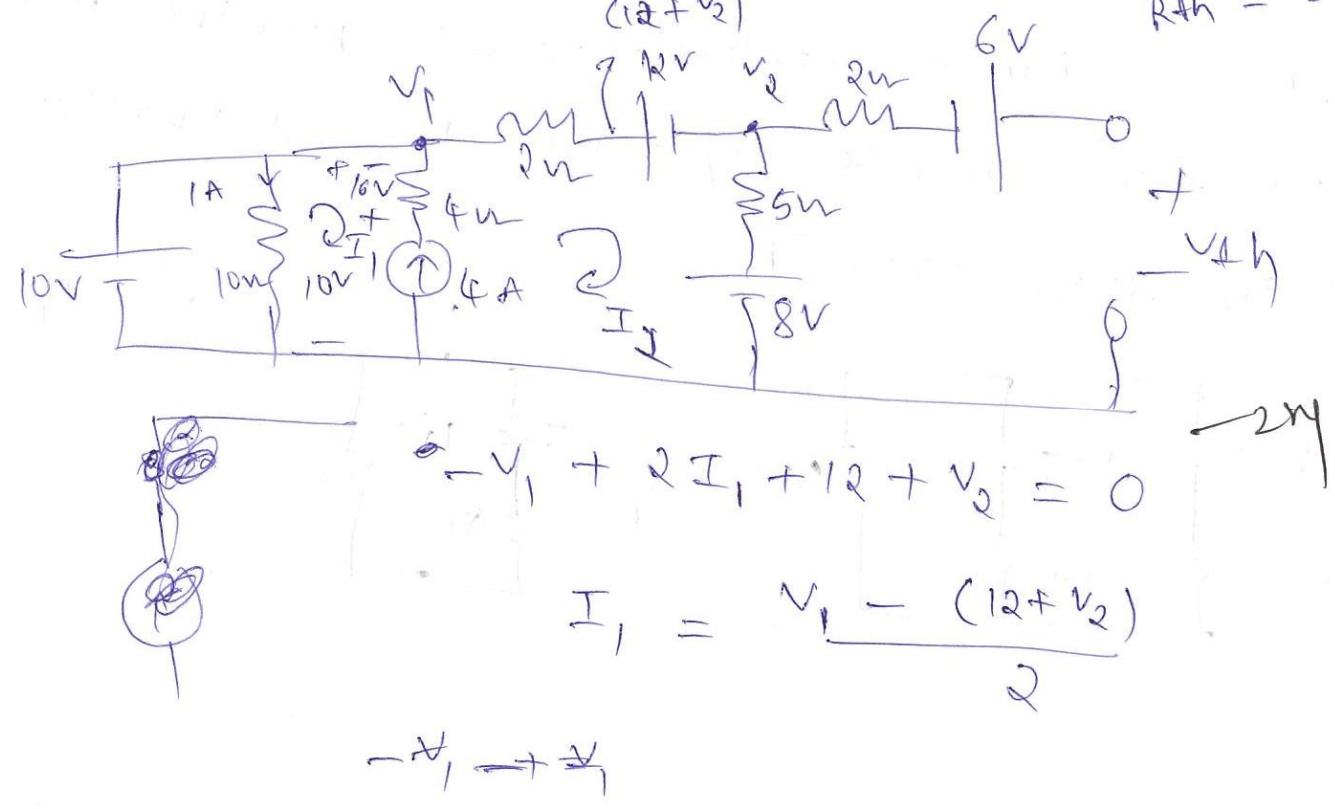 (12+V2)
Rth =
6V
V1
12V
V2
2Ω
2Ω
1A
+ 16V -
4Ω
5Ω
+
I1
10V
10Ω
10V
.4A
I2
8V
+
Vth
-
-
- V1 + 2I1 + 12 + V2 = 0
I1 = V1 - (12+V2)
2